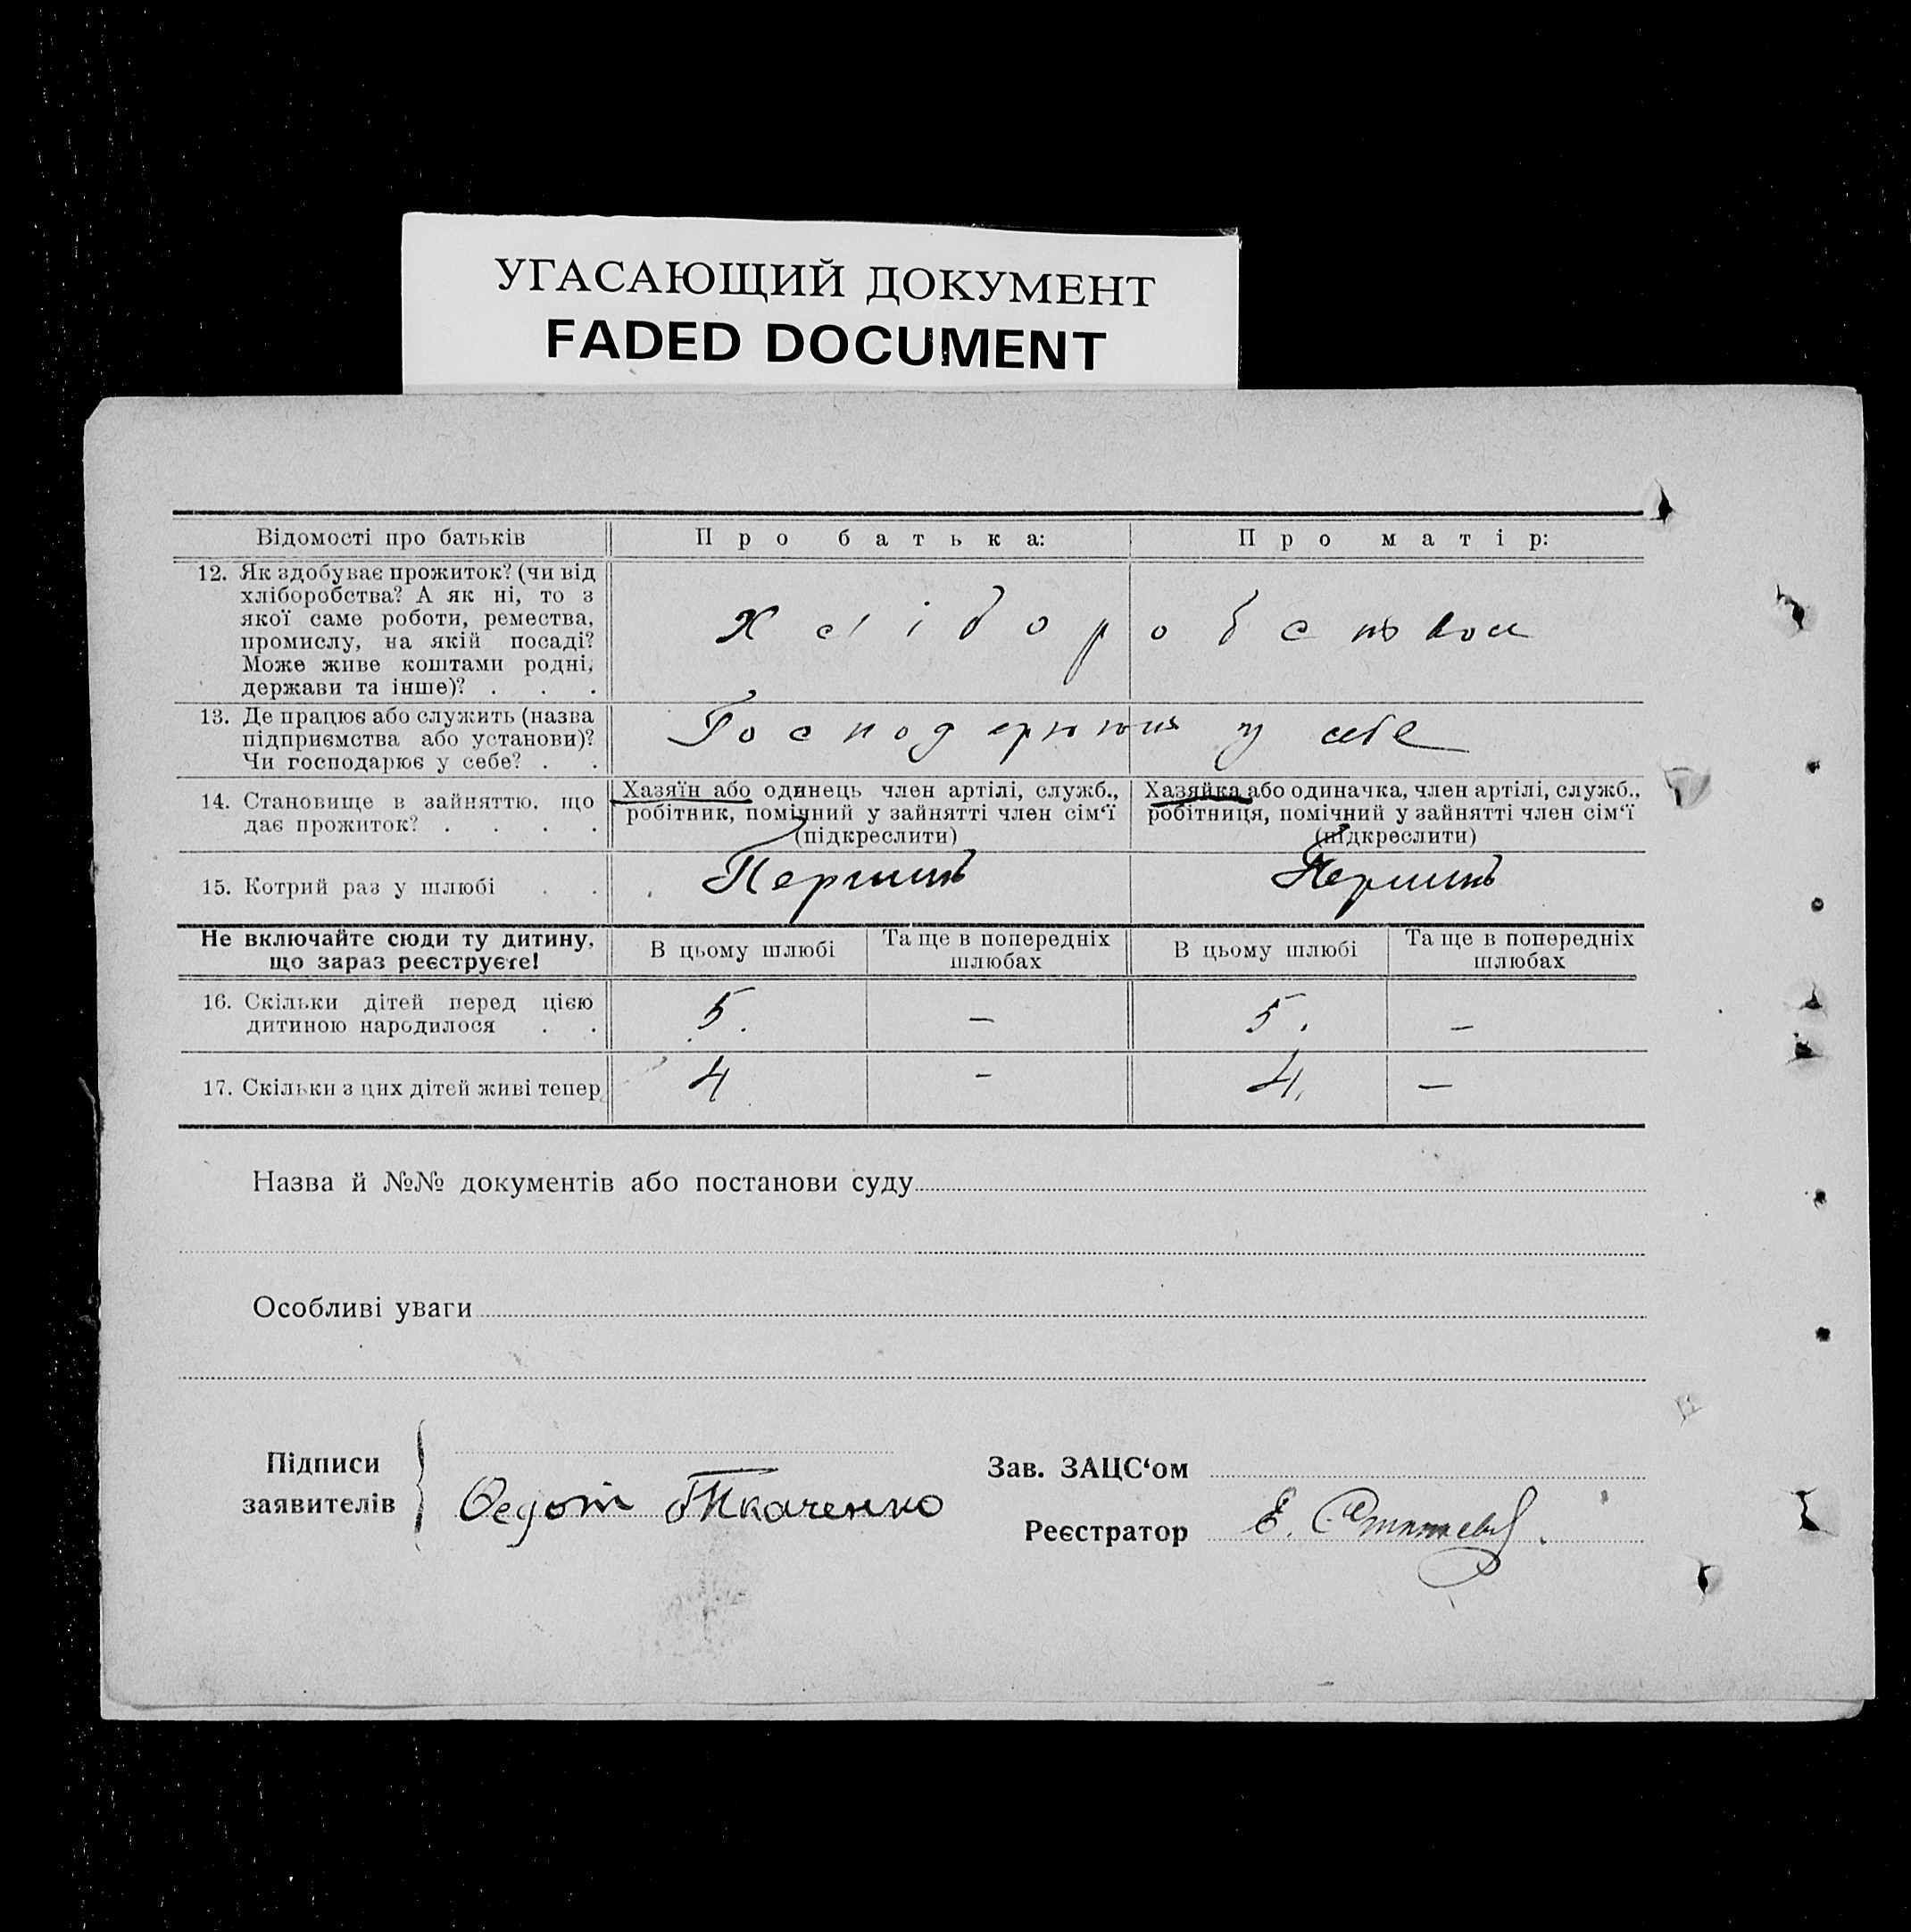 УГАСАЮЩИЙ ДОКУМЕНТ
FADED DOCUMENT
Відомості про батьків
Про батька:
Про матір:
12. Як здобуває прожиток? (чи від
хліборобства? А як ні, то з
якої саме роботи, ремества,
промислу, на якій посаді?
Може живе коштами родні,
держави та інше)? . . .
Хліборобством
13. Де працює або служить (назва
підприємства або установи)?
Чи господарює у себе? . .
у себе
14. Становище в зайняттю, що
дає прожиток? . . . .
Хазяїн або одинець член артілі, служб.,
робітник, помічний у зайнятті член сім‘ї
(підкреслити)
Хазяйка або одиначка, член артілі, служб.,
робітниця, помічний у зайнятті член сім‘ї
(підкреслити)
15. Котрий раз у шлюбі . .
Не включайте сюди ту дитину,
що зараз реєструєте!
В цьому шлюбі
Та ще в попередніх
шлюбах
В цьому шлюбі
Та ще в попередніх
шлюбах
16. Скільки дітей перед цією
дитиною народилося . .
5. — 5. —
17. Скільки з цих дітей живі тепер
4 - 4. —
Назва й №№ документів або постанови суду
Особливі уваги
Підписи
заявителів
Федот Ткаченко
Зав. ЗАЦС‘ом
Реєстратор
Е.